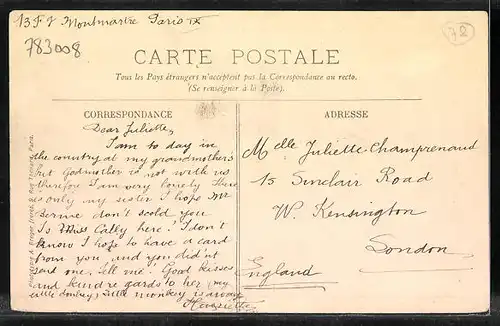 13 F g Montmartre Paris IX
783008
72
CARTE POSTALE
Tous les Pays étrangers n'acceptent pas la Correspondance au recto.
(Se renseigner à la Poste).
CORRESPONDANCE
Dear Juliette,
I am to day in
the country at my grandmother's
but Godmother is not with us
therefor I am very lonely there
is only my sister I hope Mr
don't scold you
Is Miss Cally here? I don't
know I hope to have a card
from you and you did'nt
send one, tell me. Good kisses
and kindre gards to her (my
little donkey) little monkey is away
Henriette
ADRESSE
Melle Juliette Champrenaud
15 Sinclair Road
W. Kensington
London
England